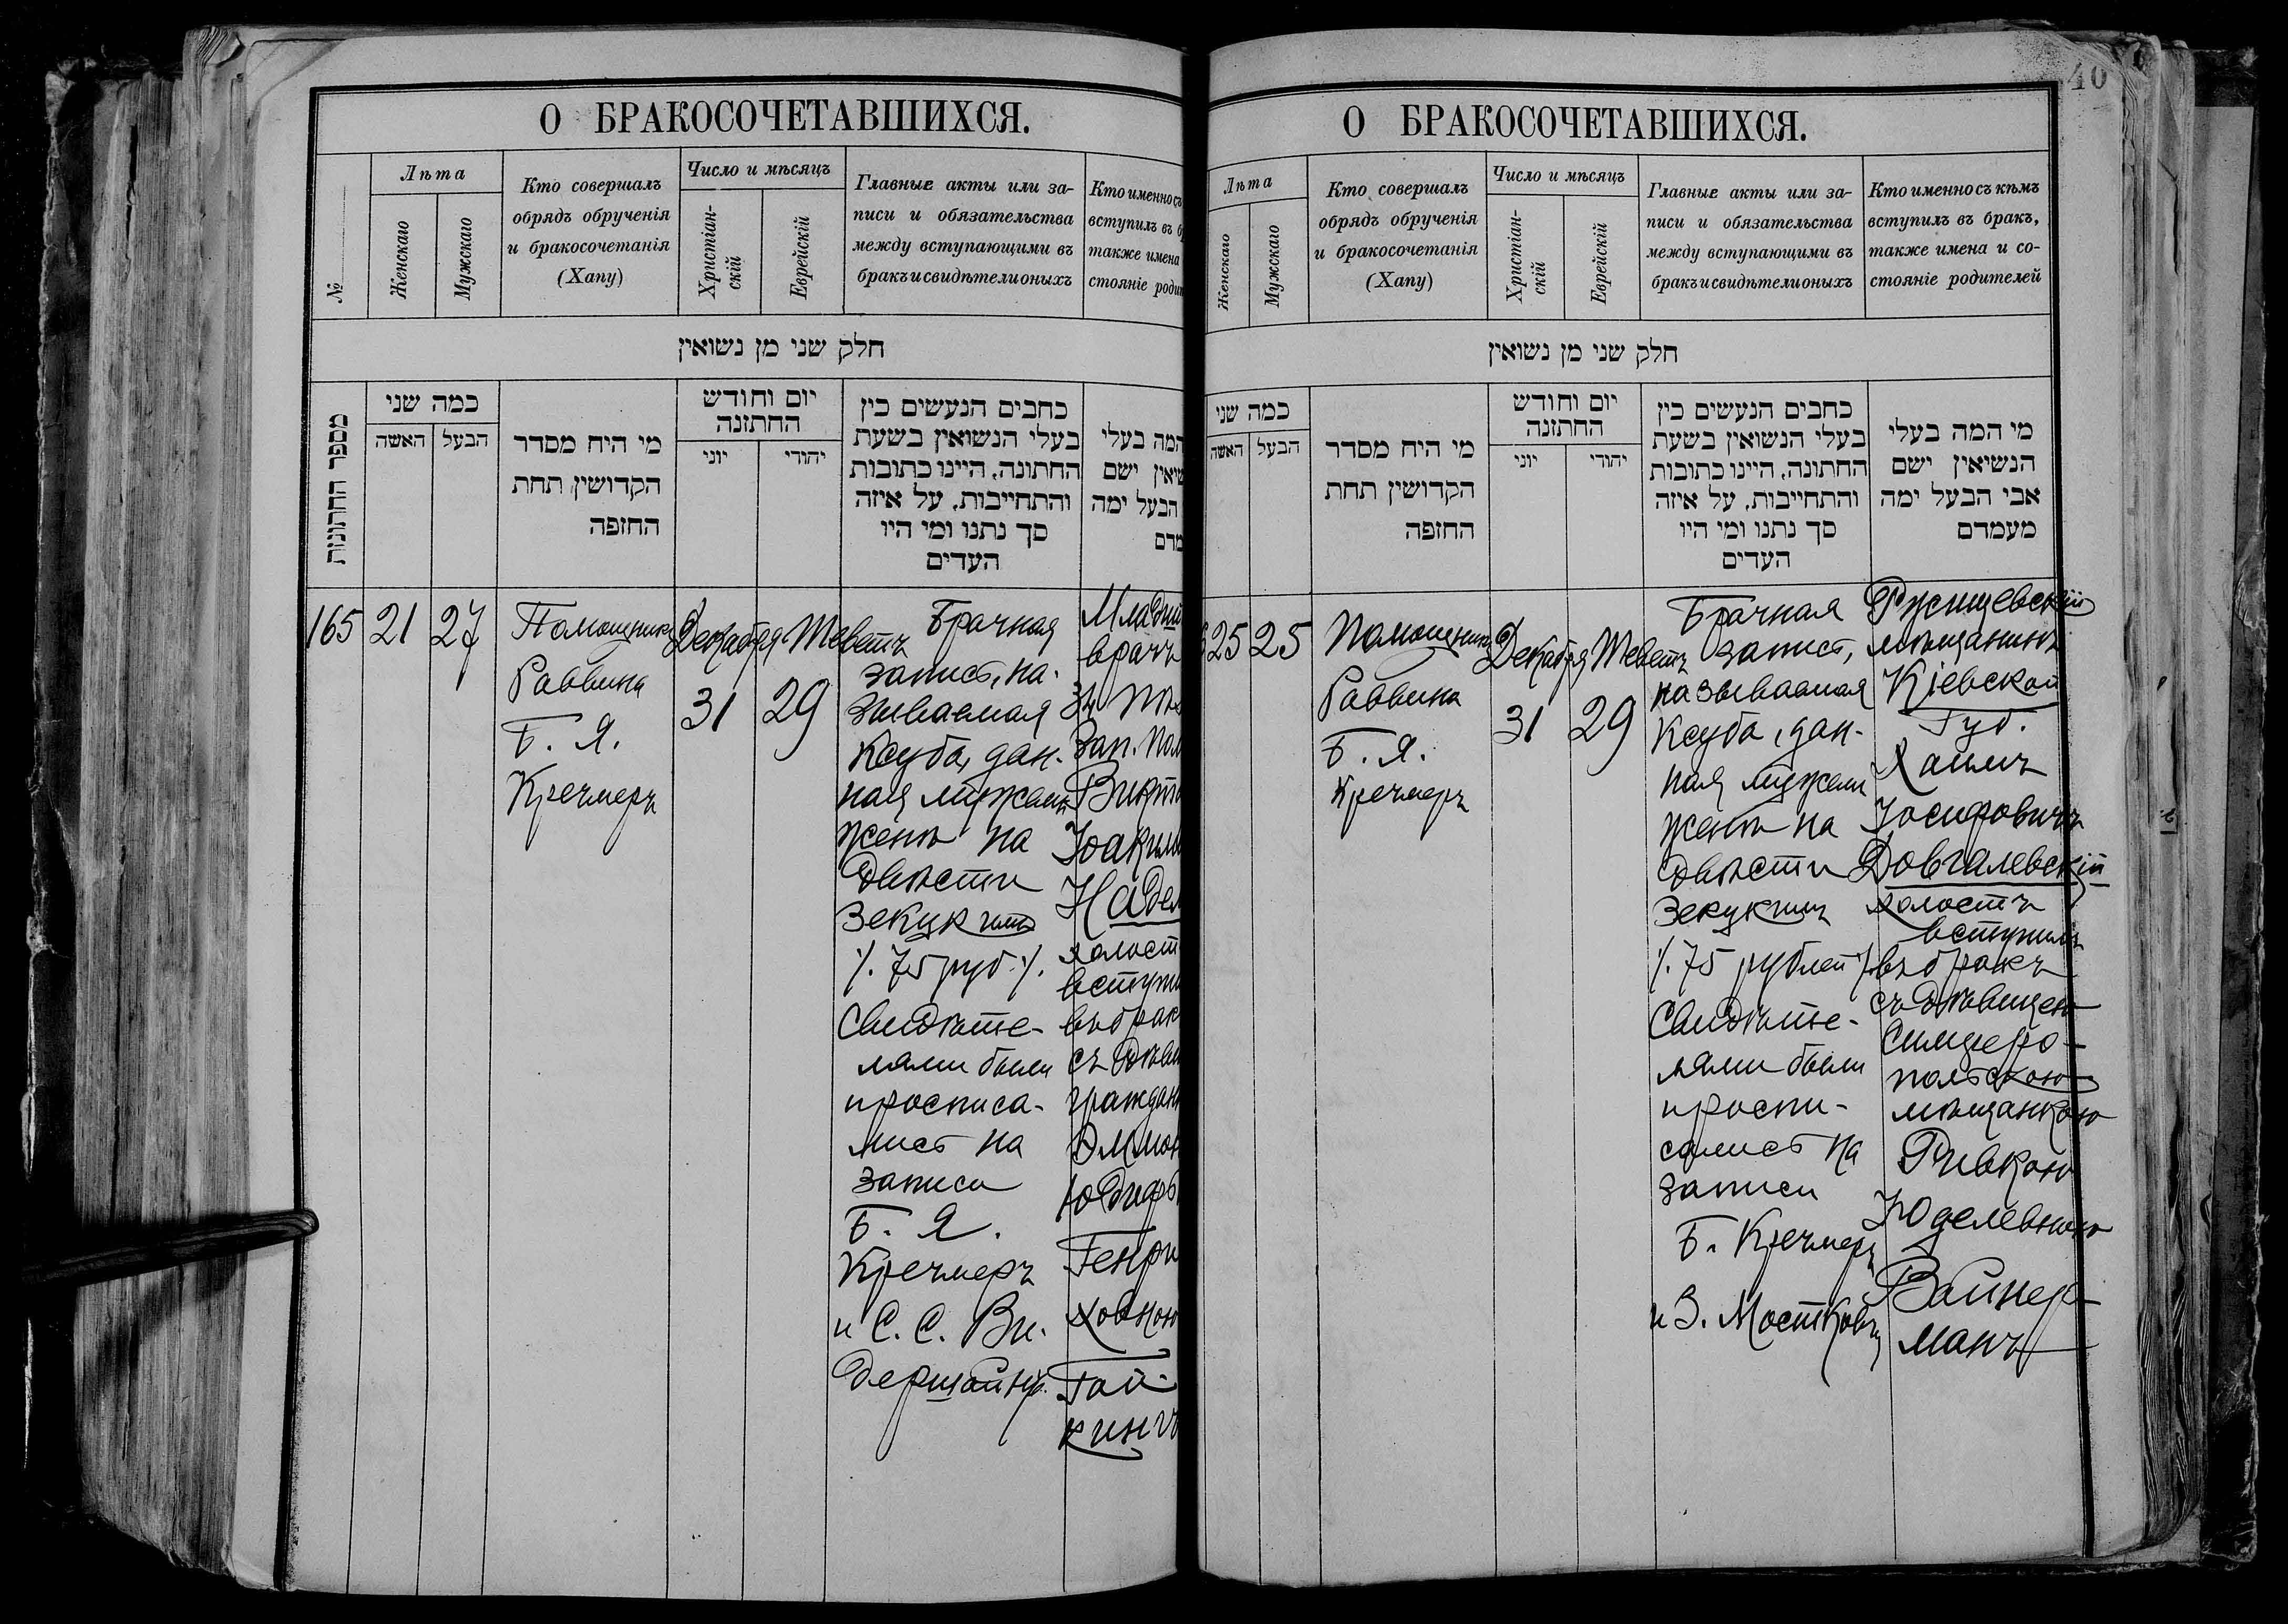 О БРАКОСОЧЕТАВШИХСЯ.
№
Лѣта
Женскаго
Мужскаго
Кто совершалъ
обрядъ обрученія
и бракосочетанія
(Хапу)
Число и мѣсяцъ
Христіан-
скій
Еврейскій
Главные акты или за-
писи и обязательства
между вступающими въ
бракъ и свидѣтели оныхъ
Кто именно съ
вступилъ въ
также имена
стояніе
חלק שני מן נשואין
מספר החתונות
כמה שני
האשה
הבעל
מי היח מסדר
הקדושין תחת
החזפה
יום וחודש
החתזנה
יוני
יהודי
כחבים הנעשים כין
בעלי הנשואין בשעת
החתונה, היינו כתובות
והתחייבות, על איזה
סך נתנו ומי היו
העדים
המה בעלי
ישם
הבעל ימה
165
21
27
Помощникъ
Раввина
Б. Я.
Кречмеръ
Декабря
31
Теветъ
29
Брачная
запись, на-
зываемая
Ксуба, дан-
ная мужемъ
женѣ на
двѣсти
зекукимъ
/. 75 руб. /.
Свидѣте-
лями были
и росписа-
лись на
записи
Б. Я.
Кречмеръ
и С. С. Ви-
дершайнъ.
врачъ
34
Зап.
холост
въ брак
съ
Ховною
Гай-
кингъ
О БРАКОСОЧЕТАВШИХСЯ.
40
Лѣта
Женскаго
Мужскаго
Кто совершалъ
обрядъ обрученія
и бракосочетанія
(Хапу)
Число и мѣсяцъ
Христіан-
скій
Еврейскій
Главные акты или за-
писи и обязательства
между вступающими въ
бракъ и свидѣтели оныхъ
Кто именно съ кѣмъ
вступилъ въ бракъ,
также имена и со-
стояніе родителей
חלק שני מן נשואין
כמה שני
האשה
הבעל
מי היח מסדר
הקדושין תחת
החזפה
יום וחודש
החתזנה
יוני
יהודי
כחבים הנעשים כין
בעלי הנשואין בשעת
החתונה, היינו כתובות
והתחייבות, על איזה
סך נתנו ומי היו
העדים
מי המה בעלי
הנשיאין ישם
אבי הבעל ימה
מעמדם
25
25
Помощникъ
Раввина
Б. Я.
Кречмеръ
Декабря
31
Теветъ
29
Брачная
запись,
называемая
Ксуба, дан-
ная мужемъ
женѣ на
двѣсти
зекукимъ
/. 75 рублей /.
Свидѣте-
лями были
и роспи-
сались на
записи
Б. Кречмеръ
и З. Мостковъ
Ржищевскій
мѣщанинъ
Кіевской
Губ.
Хаимъ
Іосифовичъ
Довгалевскій
холостъ
вступилъ
въ бракъ
съ дѣвицею
Симферо-
польскою
мѣщанкою
Ривкою
Юделевною
Вайнер-
манъ